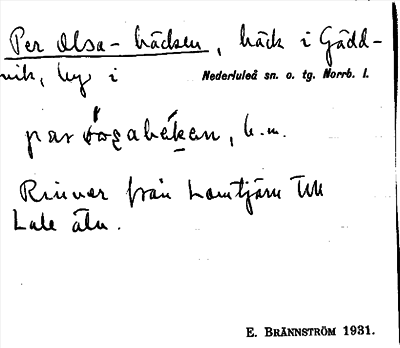 Per Olsa-bäcken, bäck i Gädd-
vik, by i Nederluleå sn. o. tg. Norrb. l.
b. m.
Rinner från Lomtjärn till
Lule älv.
E. BRÄNNSTRÖM 1931.